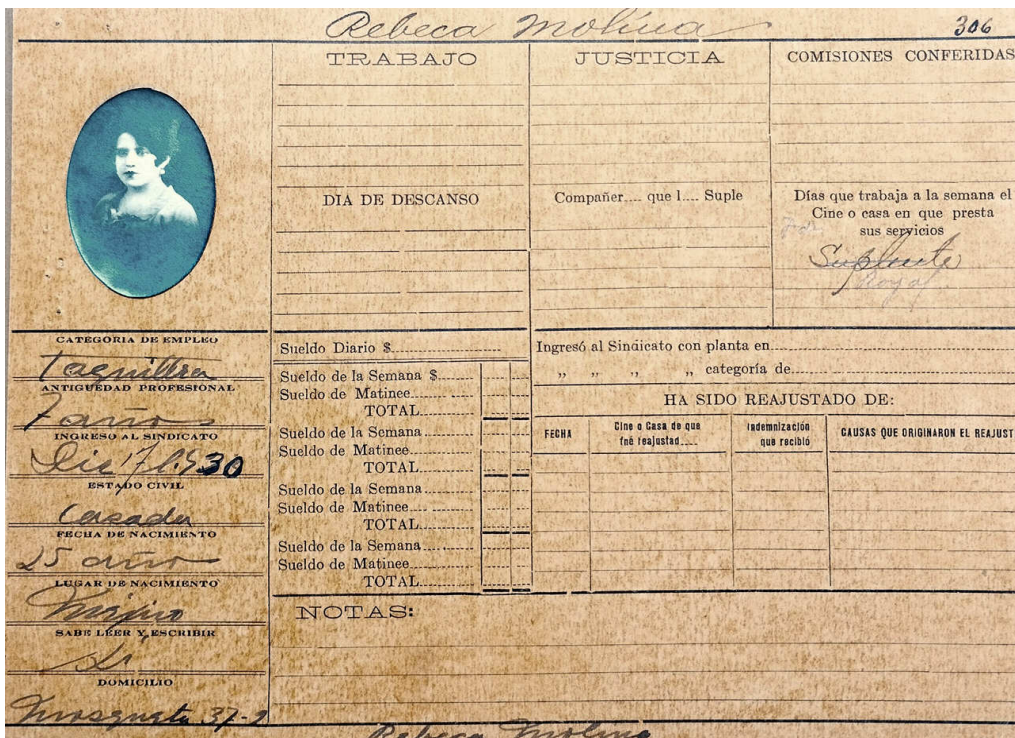 Rebeca Molina
306
TRABAJO
JUSTICIA
COMISIONES CONFERIDAS
DIA DE DESCANSO
Compañer.... que l.... Suple
Días que trabaja a la semana el
Cine o casa en que presta
sus servicios
Suplente
Royal
CATEGORIA DE EMPLEO
Taquillera
ANTIGUEDAD PROFESIONAL
7 años
INGRESO AL SINDICATO
Dic 17 1930
ESTADO CIVIL
Casada
FECHA DE NACIMIENTO
25 año
LUGAR DE NACIMIENTO
Mejico
SABE LEER Y ESCRIBIR
Si
DOMICILIO
Mosqueta 37-9
Sueldo Diario $
Sueldo de la Semana $
Sueldo de Matinee
TOTAL
Sueldo de la Semana
Sueldo de Matinee
TOTAL
Sueldo de la Semana
Sueldo de Matinee
TOTAL
Sueldo de la Semana
Sueldo de Matinee
TOTAL
Ingresó al Sindicato con planta en
„ „ „ „ categoría de
HA SIDO REAJUSTADO DE:
FECHA
Cine o Casa de que
fué reajustad.....
Indemnización
que recibió
CAUSAS QUE ORIGINARON EL REAJUST
NOTAS:
Rebeca Molina